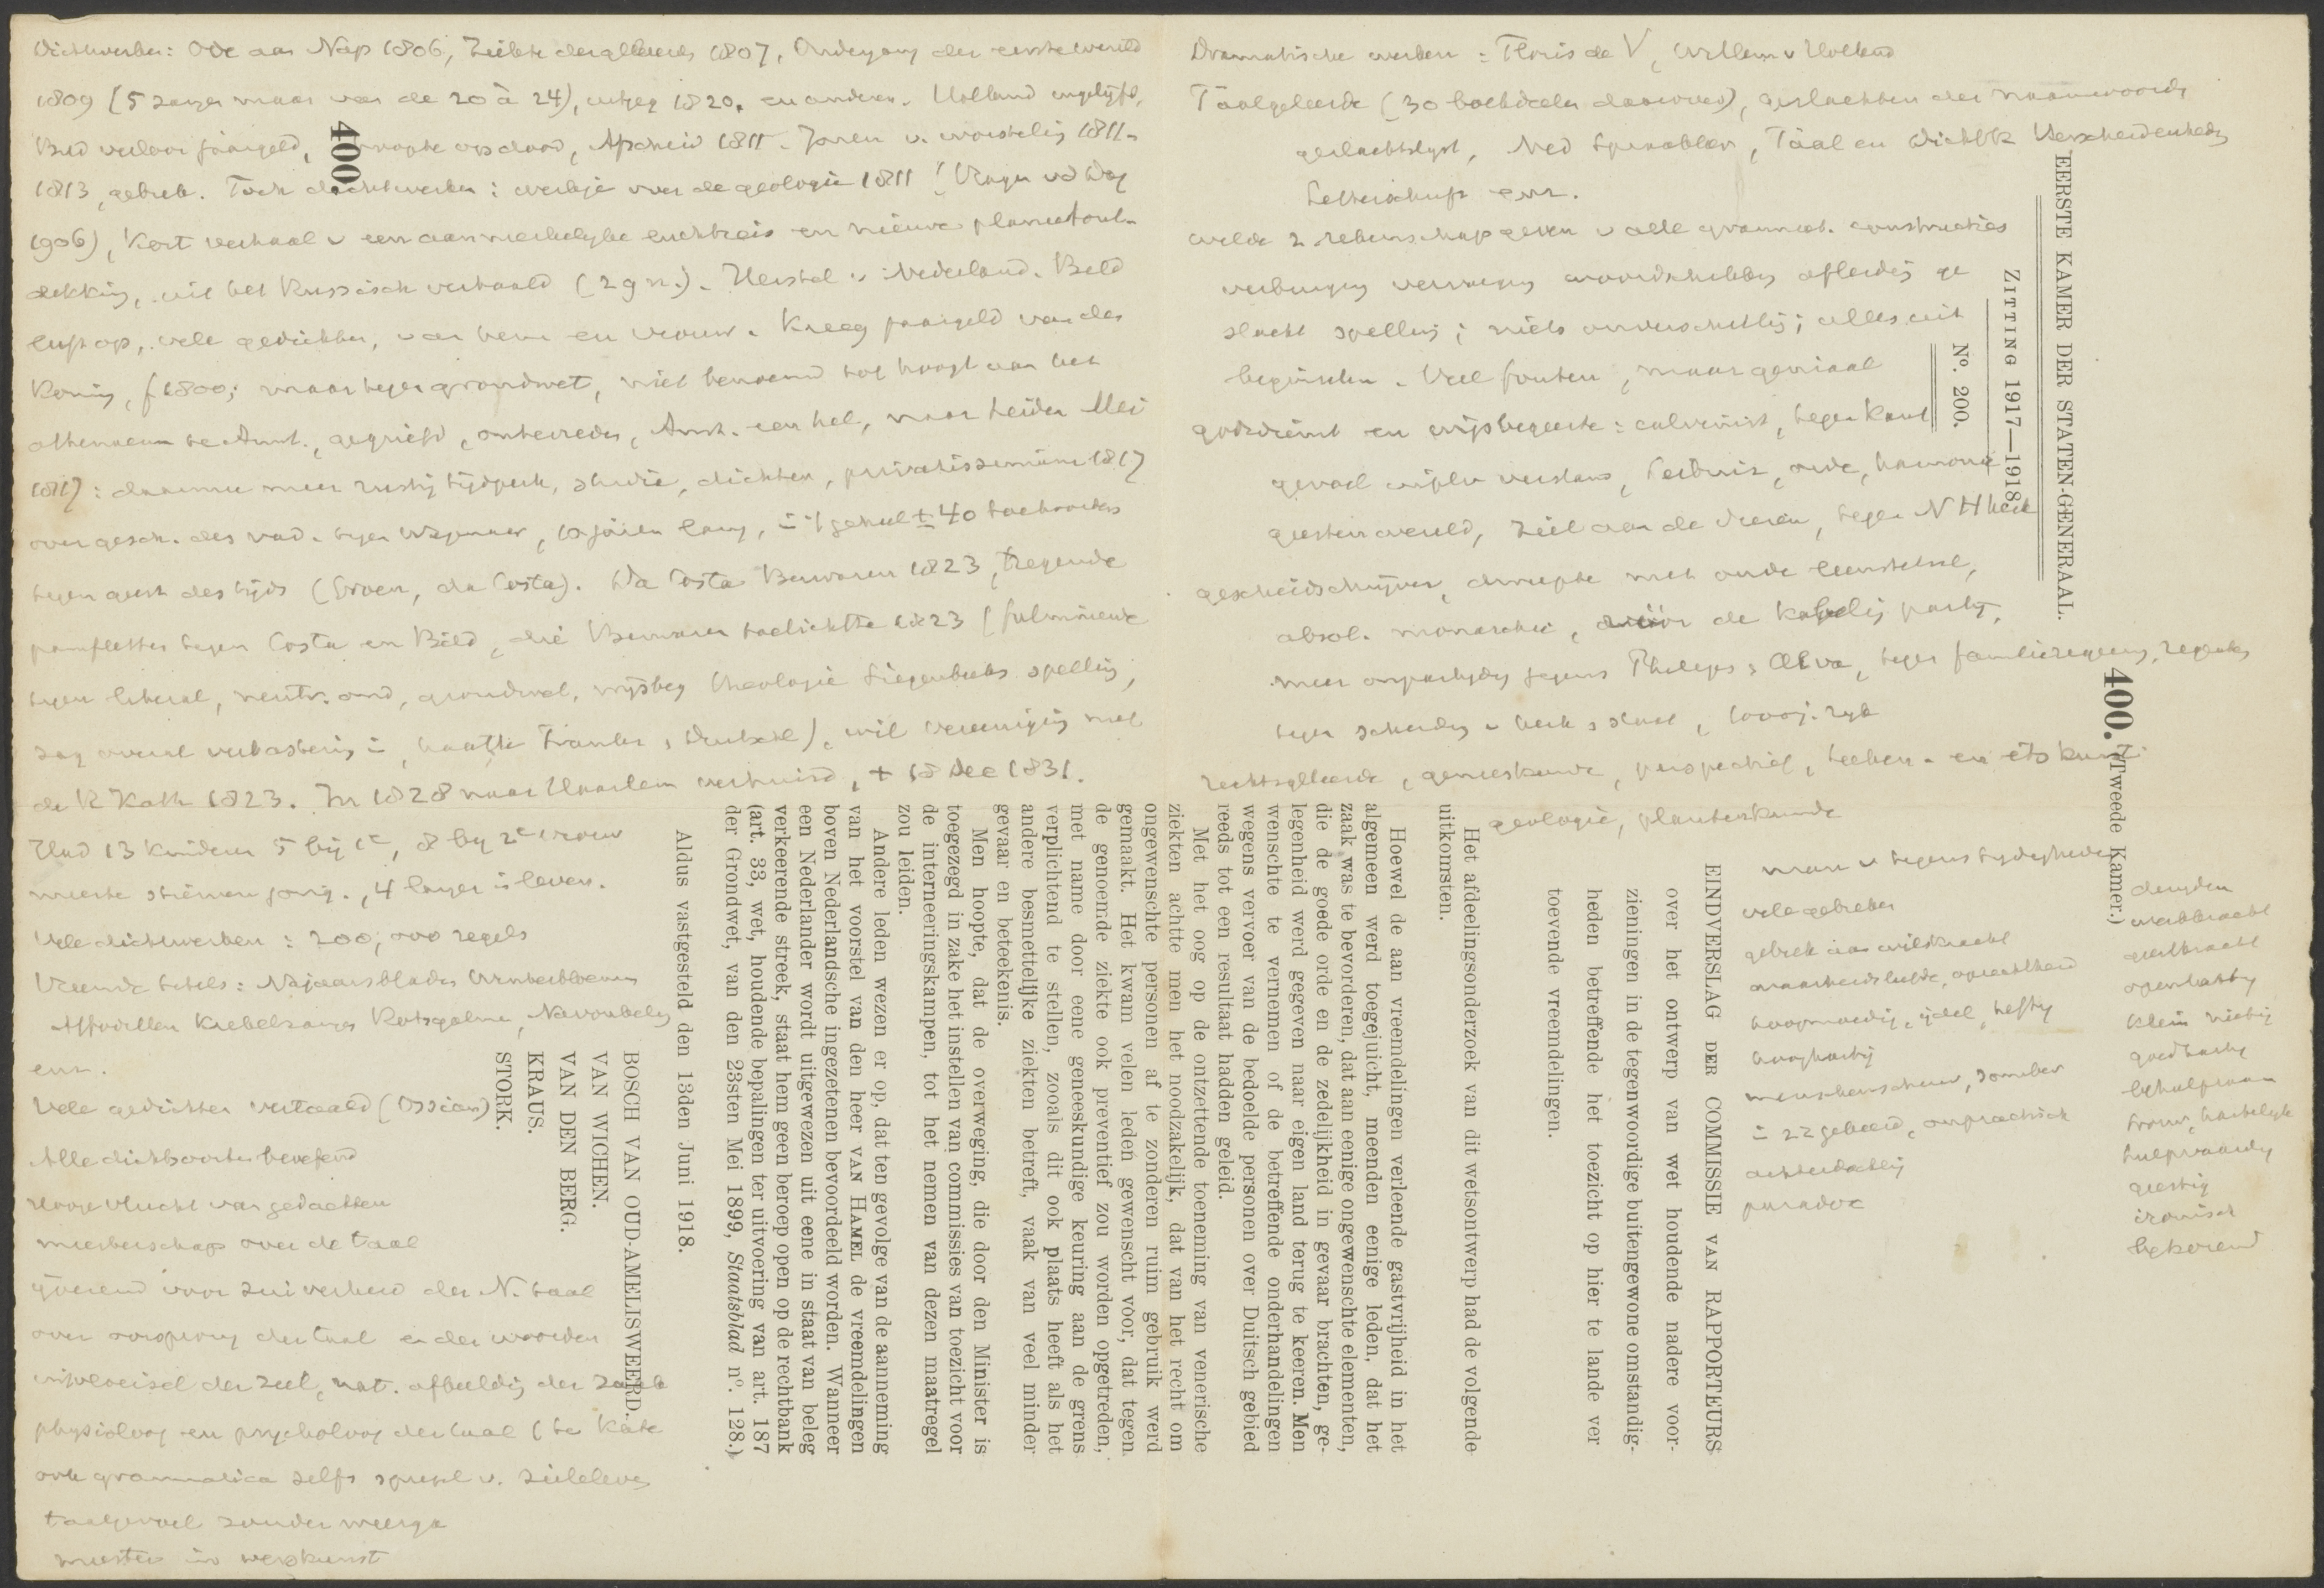 Dichtwerken: Ode aan Nap 1806, Ziekte der geleerden 1807, Ondergang der eerste wereld
1809 (5 zangen maar van de 20 à 24), uitgeg 1820, en anderen. Holland ingelijfd,
Bild verloor jaargeld, hoopte op dood, Afscheid 1811. Jaren v. worsteling 1811-
1813, gebrek. Toch dichtwerken: werkje over de geologie 1811 !
1906), Kort verhaal v een aanmerkelijke luchtreis en nieuwe planeetont-
dekking, uit het Russisch vertaald (zgn.). Herstel v Nederland. Bild
leeft op, vele gedichten, van hem en vrouw. Kreeg jaargeld van den
Koning, f 1800; maar tegen grondwet, niet benoemd tot hoogl aan het
athenaeum te Amst., gegriefd, ontevreden, Amst. een hel, naar Leiden Mei
1817: daarmee meer rustig tijdperk, studie, dichten, privatissimum 1817
over gesch. des vad. tegen Wagenaar, 10 jaren lang, in 't geheel ± 40 toehoorders
tegen geest des tijds (Groen, da Costa). Da Costa Bezwaren 1823, tregende
pamfletten tegen Costa en Bild, die Bezwaren toelichtte 1823 (fulmineerde
tegen liberal, neutr. ond, grondwet, wijsbeg theologie Siegenbeeks spelling,
zag overal verbastering in, haatte Franken, Duitsche), wil vereeniging met
de R Kath 1823. In 1828 naar Haarlem verhuisd, + 18 Dec 1831.
Had 13 kinderen 5 bij 1e, 8 bij 2e vrouw
meeste stierven jong, 4 langer in leven.
Vele dichtwerken: 200,000 regels
Vreemde titels: Najaarsbladen Winterbloemen
Affodillen Krekelzangen Rotsgalmen, Navonkeling
enz.
Vele gedichten vertaald (Ossian)
Alle dichtsoorten beoefend
Hooge vlucht van gedachten
meesterschap over de taal
ijverend voor zuiverheid der N. taal
over oorsprong der taal en der woorden
uitvloeisel der ziel, nat. afbeelding der zaak
physioloog en psycholoog der taal (te Kate
ook grammatica zelfs spiegel v. zieleleven
taalgevoel zonder weerga
meester in verskunst
Dramatische werken: Floris de V, Willem v Holland
Taalgeleerde (30 boekdeelen daarover), geslachten der naamwoorden
geslachtslijst, Ned Spraakleer, Taal en Dichtk Verscheidenheden
Letterschrift enz.
wilde 2 rekenschap geven v alle grammat. constructies
verbuigingen vervoegingen afleiding ge
slacht spelling; niets onverschillig; alles uit
beginselen. Veel fouten, maar geniaal
godsdienst en wijsbegeerte: calvinist, tegen Kant
gevoel verstand, Leibniz, orde, harmonie
geestenwereld, ziel aan de dieren, tegen N H kerk
geschiedschrijver, dweepte met oude leenstelsel,
absol. monarchie, vóór de kabelj partij,
meer onpartijdig jegens Philips, Alva, tegen familieregering, regenten
tegen scheiding v kerk, staat, 1000j. rijk
rechtsgeleerde, geneeskunde, perspectief, teeken- en etskunst
geologie, plantenkunde
man v tegenstrijdigheden
vele gebreken
gebrek aan wilskracht
waarheidsliefde, oprechtheid
hoogmoedig, ijdel, heftig
hooghartig
menschenschuw, somber
in zz gekeerd, onpractisch
achterdochtig
paradox
deugden
werkkracht
geestkracht
openhartig
klein nietig
goedhartig
behulpzaam
trouw, hartelijk
hulpvaardig
geestig
ironisch
bekorend
400.
400. (Tweede Kamer.)
EERSTE KAMER DER STATEN-GENERAAL.
ZITTING 1917—1918.
No. 200.
EINDVERSLAG DER COMMISSIE VAN RAPPORTEURS
over het ontwerp van wet houdende nadere voor-
zieningen in de tegenwoordige buitengewone omstandig-
heden betreffende het toezicht op hier te lande ver
toevende vreemdelingen.
Het afdeelingsonderzoek van dit wetsontwerp had de volgende
uitkomsten.
Hoewel de aan vreemdelingen verleende gastvrijheid in het
algemeen werd toegejuicht, meenden eenige leden, dat het
zaak was te bevorderen, dat aan eenige ongewenschte elementen,
die de goede orde en de zedelijkheid in gevaar brachten, ge-
legenheid werd gegeven naar eigen land terug te keeren. Men
wenschte te vernemen of de betreffende onderhandelingen
wegens vervoer van de bedoelde personen over Duitsch gebied
reeds tot een resultaat hadden geleid.
Met het oog op de ontzettende toeneming van venerische
ziekten achtte men het noodzakelijk, dat van het recht om
ongewenschte personen af te zonderen ruim gebruik werd
gemaakt. Het kwam velen leden gewenscht voor, dat tegen
de genoemde ziekte ook preventief zou worden opgetreden,
met name door eene geneeskundige keuring aan de grens
verplichtend te stellen, zooals dit ook plaats heeft als het
andere besmettelijke ziekten betreft, vaak van veel minder
gevaar en beteekenis.
Men hoopte, dat de overweging, die door den Minister is
toegezegd in zake het instellen van commissies van toezicht voor
de interneeringskampen, tot het nemen van dezen maatregel
zou leiden.
Andere leden wezen er op, dat ten gevolge van de aanneming
van het voorstel van den heer VAN HAMEL de vreemdelingen
boven Nederlandsche ingezetenen bevoordeeld worden. Wanneer
een Nederlander wordt uitgewezen uit eene in staat van beleg
verkeerende streek, staat hem geen beroep open op de rechtbank
(art. 33, wet, houdende bepalingen ter uitvoering van art. 187
der Grondwet, van den 23sten Mei 1899, Staatsblad no. 128.)
Aldus vastgesteld den 13den Juni 1918.
BOSCH VAN OUD-AMELISWEERD.
VAN WICHEN.
VAN DEN BERG.
KRAUS.
STORK.